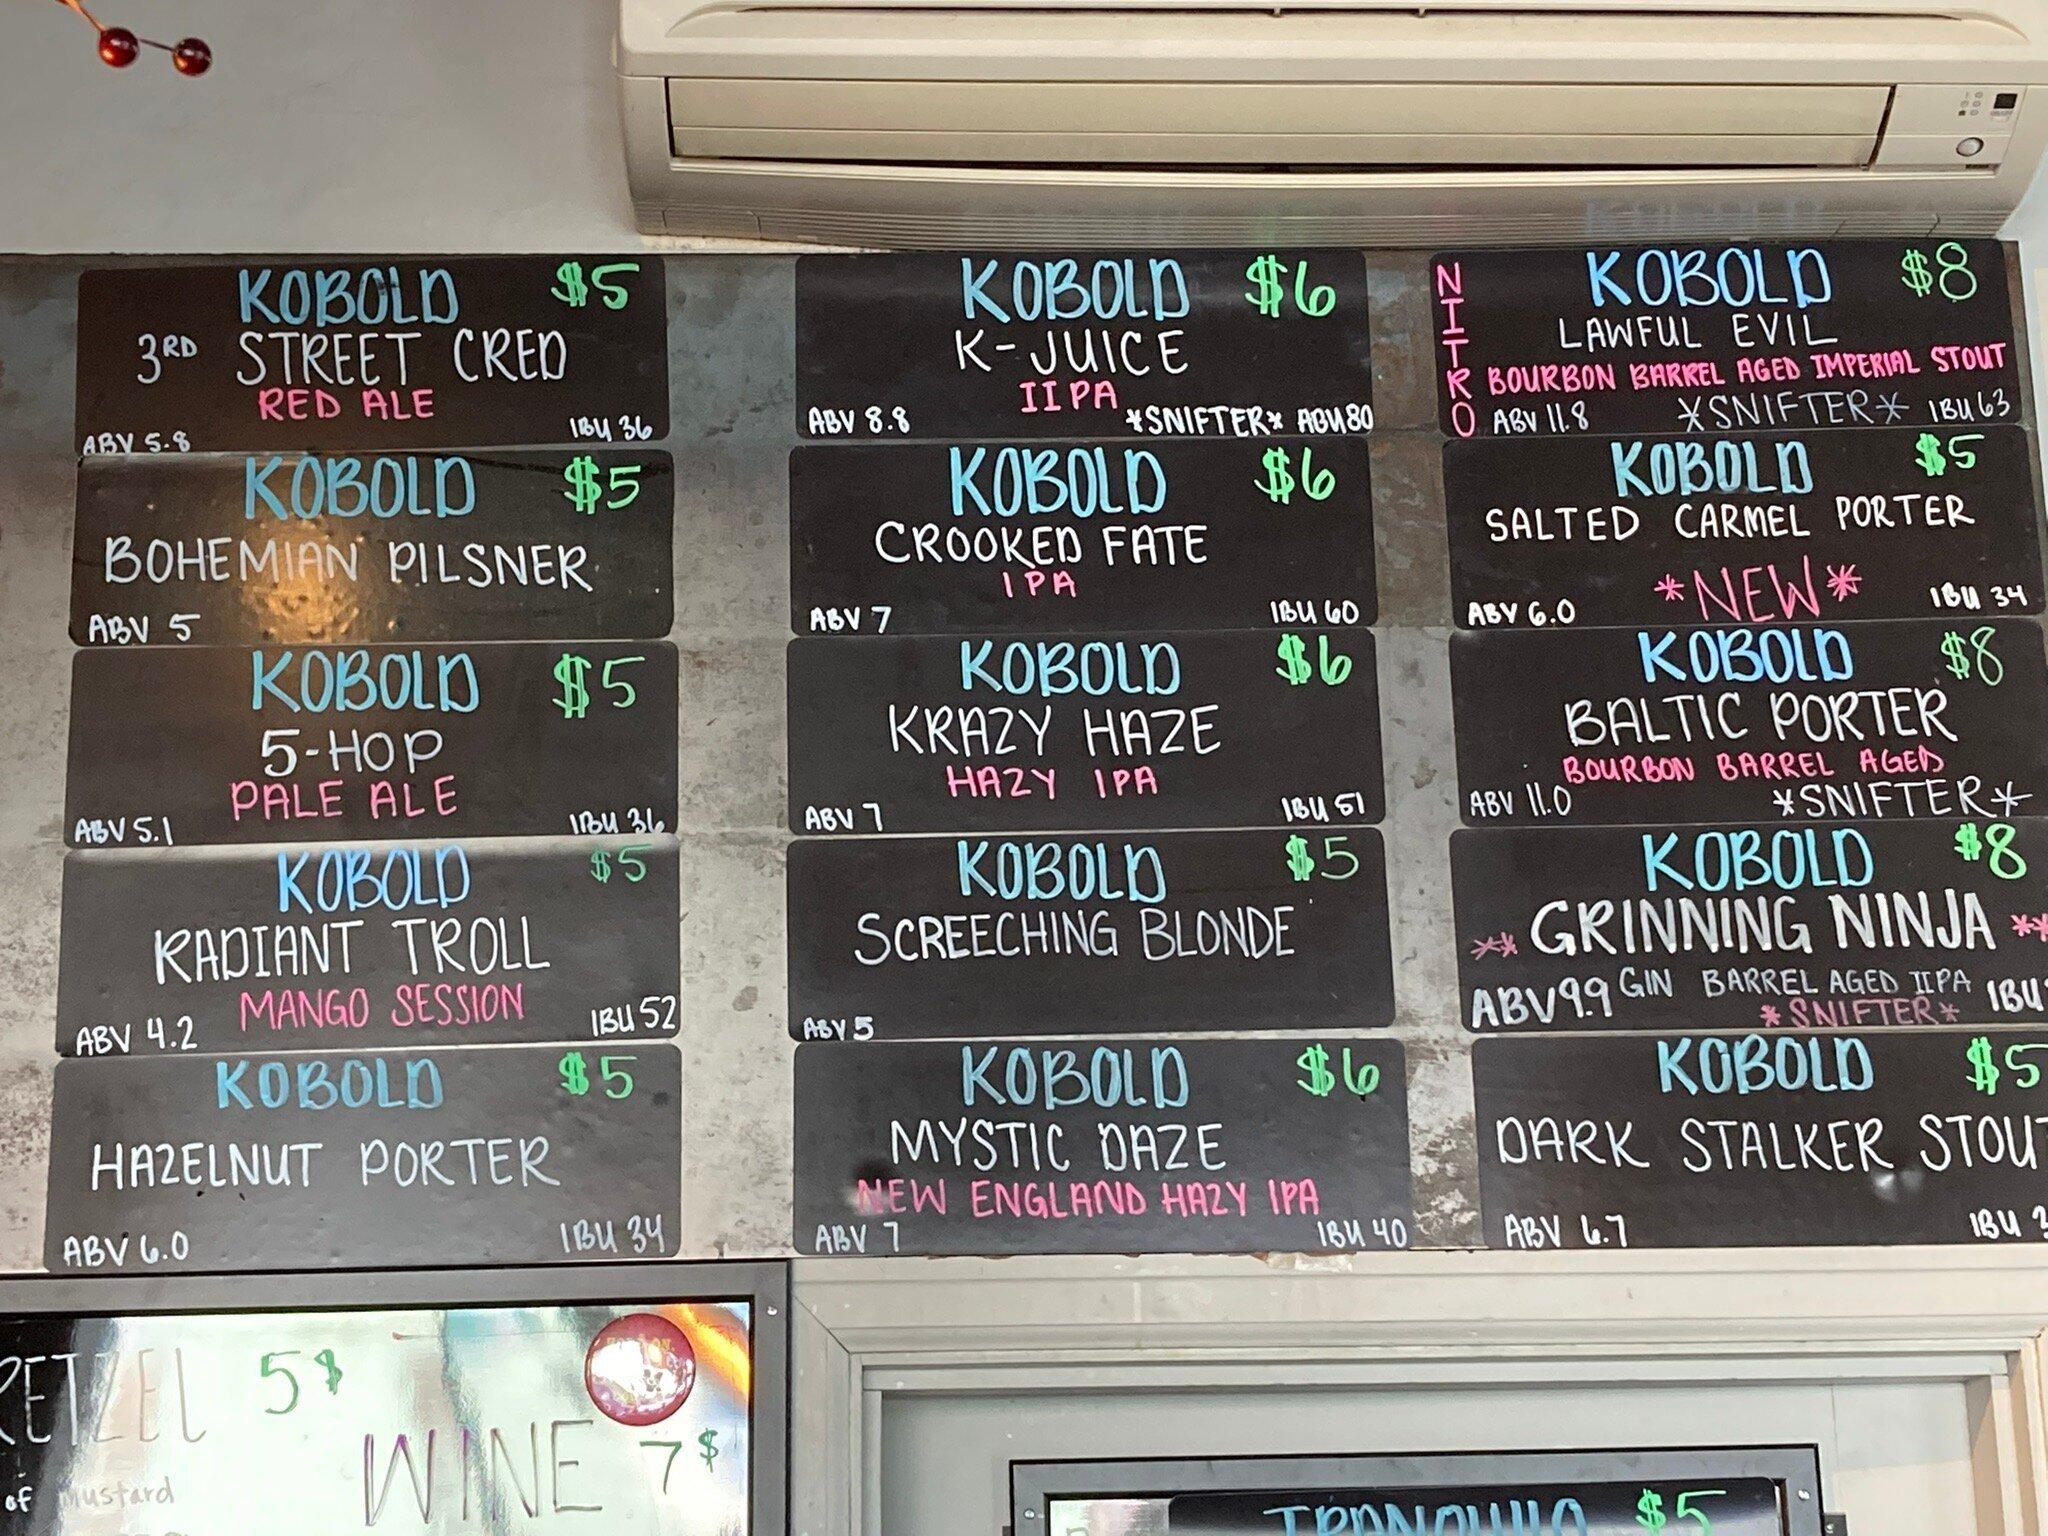 KOBOLD $5
3RD STREET CRED
RED ALE
ABV 5.8 IBU 36
KOBOLD $5
BOHEMIAN PILSNER
ABV 5
KOBOLD $5
5-HOP
PALE ALE
ABV 5.1 IBU 36
KOBOLD $5
RADIANT TROLL
MANGO SESSION
ABV 4.2 IBU 52
KOBOLD $5
HAZELNUT PORTER
ABV 6.0 IBU 34
KOBOLD $6
K-JUICE
IIPA
ABV 8.8 *SNIFTER* ABU 80
KOBOLD $6
CROOKED FATE
IPA
ABV 7 IBU 60
KOBOLD $6
KRAZY HAZE
HAZY IPA
ABV 7 IBU 51
KOBOLD $5
SCREECHING BLONDE
ABV 5
KOBOLD $6
MYSTIC DAZE
NEW ENGLAND HAZY IPA
ABV 7 IBU 40
NITRO
KOBOLD $8
LAWFUL EVIL
BOURBON BARREL AGED IMPERIAL STOUT
ABV 11.8 *SNIFTER* IBU 63
KOBOLD $5
SALTED CARMEL PORTER
ABV 6.0 *NEW* IBU 34
KOBOLD $8
BALTIC PORTER
BOURBON BARREL AGED
ABV 11.0 *SNIFTER*
KOBOLD $8
** GRINNING NINJA **
ABV 9.9 GIN BARREL AGED IIPA IBU
*SNIFTER*
KOBOLD $5
DARK STALKER STOUT
ABV 6.7 IBU
RETZEL 5$
WINE 7$
of Mustard
TRANQUILO $5